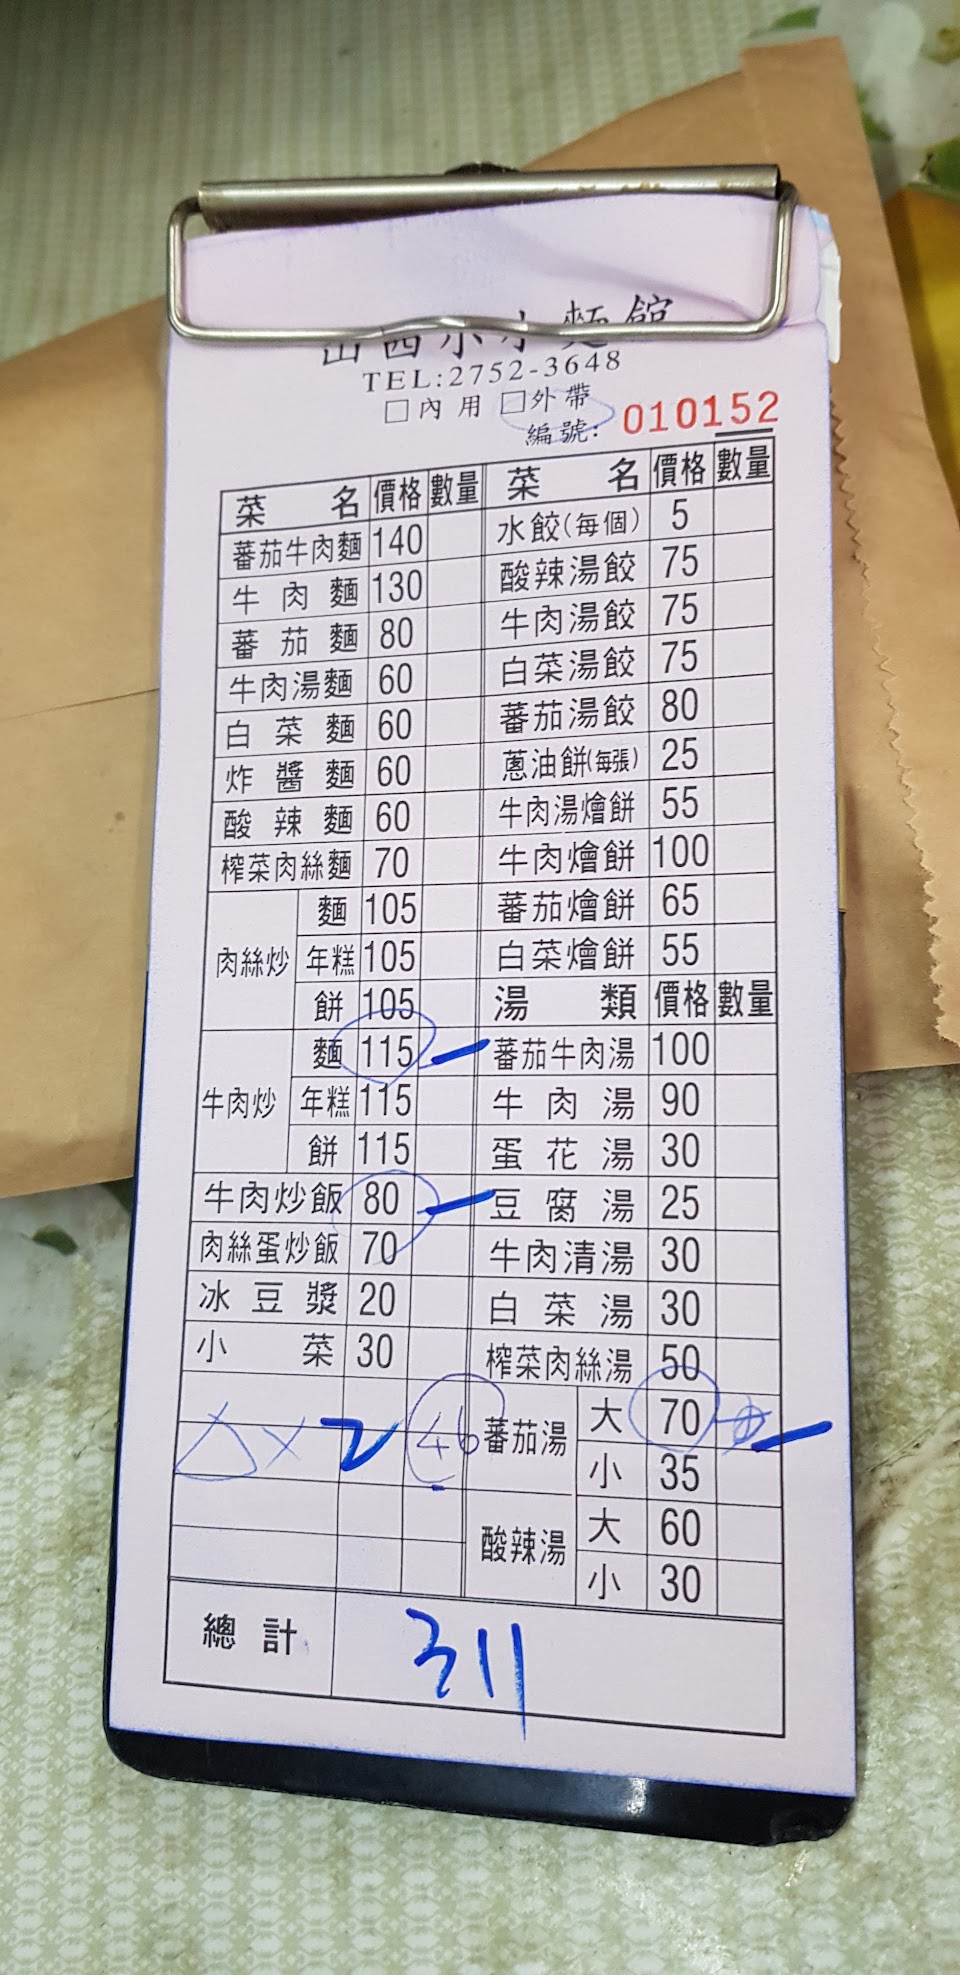 山西小小麵館
TEL:2752-3648
□內用 □外帶
編號: 010152
菜名 價格 數量 菜名 價格 數量
蕃茄牛肉麵 140 水餃(每個) 5
牛肉麵 130 酸辣湯餃 75
蕃茄麵 80 牛肉湯餃 75
牛肉湯麵 60 白菜湯餃 75
白菜麵 60 蕃茄湯餃 80
炸醬麵 60 蔥油餅(每張) 25
酸辣麵 60 牛肉湯燴餅 55
榨菜肉絲麵 70 牛肉燴餅 100
肉絲炒 麵 105 蕃茄燴餅 65
年糕 105 白菜燴餅 55
餅 105 湯類 價格 數量
牛肉炒 麵 115 蕃茄牛肉湯 100
年糕 115 牛肉湯 90
餅 115 蛋花湯 30
牛肉炒飯 80 豆腐湯 25
肉絲蛋炒飯 70 牛肉清湯 30
冰豆漿 20 白菜湯 30
小菜 30 榨菜肉絲湯 50
蕃茄湯 大 70
△×2 46 小 35
酸辣湯 大 60
小 30
總計 311